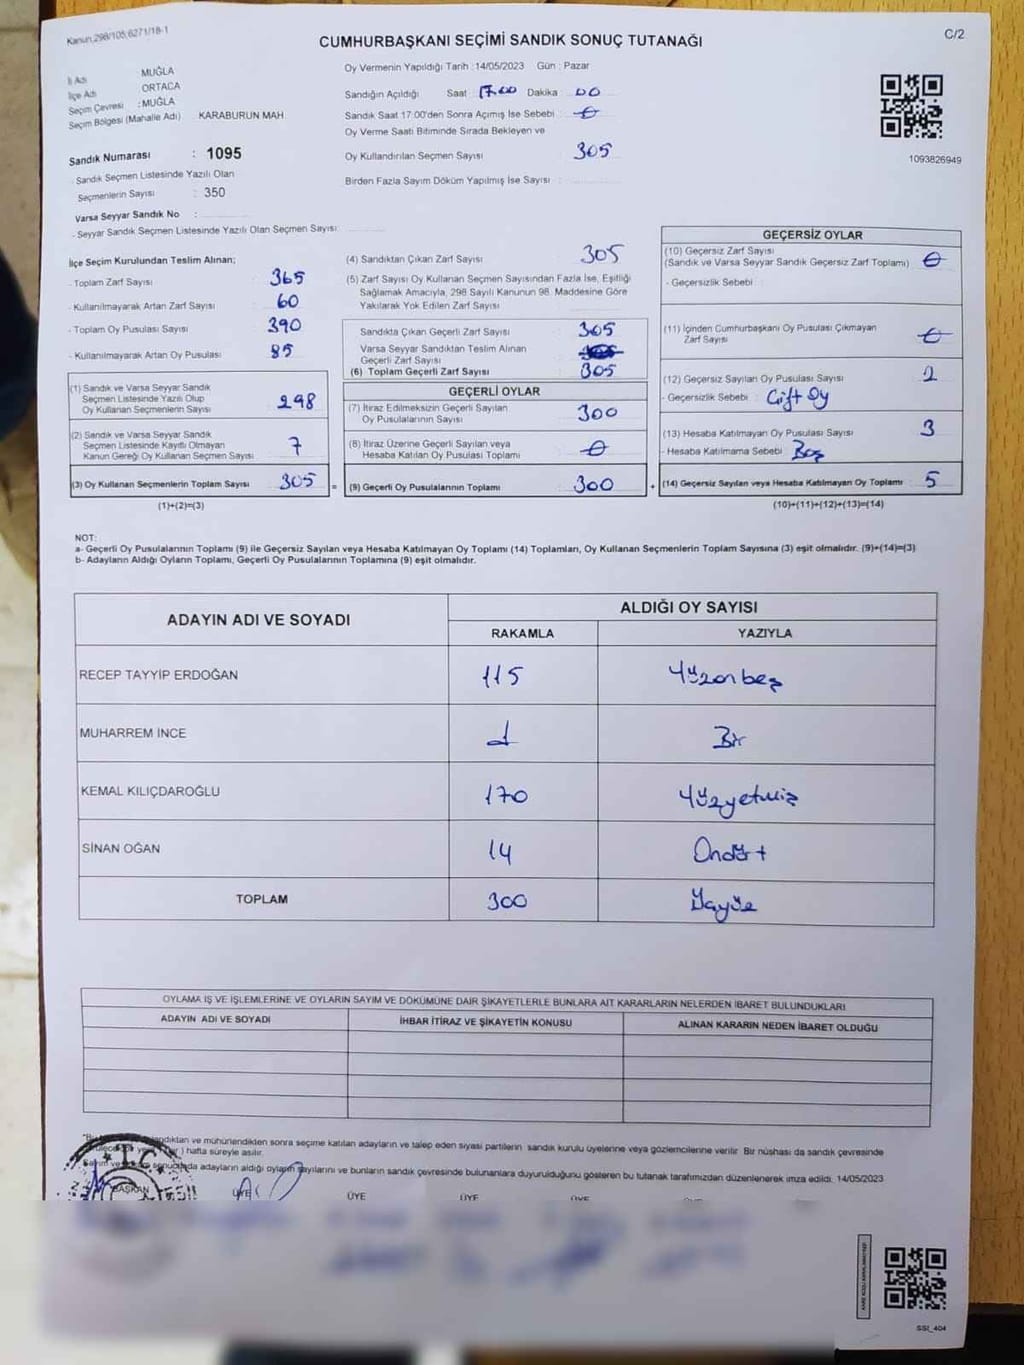 Kanun,298/105;6271/18-1
C/2
CUMHURBAŞKANI SEÇİMİ SANDIK SONUÇ TUTANAĞI
İl Adı MUĞLA
İlçe Adı ORTACA
Seçim Çevresi : MUĞLA
Seçim Bölgesi (Mahalle Adı) KARABURUN MAH
Oy Vermenin Yapıldığı Tarih :14/05/2023 Gün : Pazar
Sandığın Açıldığı Saat : 17.00 Dakika : 00
Sandık Saat 17:00'den Sonra Açımış İse Sebebi : 0
Oy Verme Saati Bitiminde Sırada Bekleyen ve
Oy Kullandırılan Seçmen Sayısı 305
Birden Fazla Sayım Döküm Yapılmış İse Sayısı :
1093826949
Sandık Numarası : 1095
- Sandık Seçmen Listesinde Yazılı Olan
Seçmenlerin Sayısı : 350
Varsa Seyyar Sandık No :
- Seyyar Sandık Seçmen Listesinde Yazılı Olan Seçmen Sayısı:
İlçe Seçim Kurulundan Teslim Alınan;
- Toplam Zarf Sayısı : 365
- Kullanılmayarak Artan Zarf Sayısı : 60
- Toplam Oy Pusulası Sayısı : 390
- Kullanılmayarak Artan Oy Pusulası : 85
(1) Sandık ve Varsa Seyyar Sandık
Seçmen Listesinde Yazılı Olup
Oy Kullanan Seçmenlerin Sayısı : 298
(2) Sandık ve Varsa Seyyar Sandık
Seçmen Listesinde Kayıtlı Olmayan
Kanun Gereği Oy Kullanan Seçmen Sayısı : 7
(3) Oy Kullanan Seçmenlerin Toplam Sayısı : 305
(1)+(2)=(3)
(4) Sandıktan Çıkan Zarf Sayısı : 305
(5) Zarf Sayısı Oy Kullanan Seçmen Sayısından Fazla İse, Eşitliği
Sağlamak Amacıyla, 298 Sayılı Kanunun 98. Maddesine Göre
Yakılarak Yok Edilen Zarf Sayısı :
Sandıkta Çıkan Geçerli Zarf Sayısı : 305
Varsa Seyyar Sandıktan Teslim Alınan
Geçerli Zarf Sayısı
(6) Toplam Geçerli Zarf Sayısı : 305
GEÇERLİ OYLAR
(7) İtiraz Edilmeksizin Geçerli Sayılan
Oy Pusulalarının Sayısı : 300
(8) İtiraz Üzerine Geçerli Sayılan veya
Hesaba Katılan Oy Pusulası Toplamı : 0
= (9) Geçerli Oy Pusulalarının Toplamı : 300 +
GEÇERSİZ OYLAR
(10) Geçersiz Zarf Sayısı
(Sandık ve Varsa Seyyar Sandık Geçersiz Zarf Toplamı) : 0
- Geçersizlik Sebebi :
(11) İçinden Cumhurbaşkanı Oy Pusulası Çıkmayan
Zarf Sayısı : 0
(12) Geçersiz Sayılan Oy Pusulası Sayısı : 2
- Geçersizlik Sebebi : Çift Oy
(13) Hesaba Katılmayan Oy Pusulası Sayısı : 3
- Hesaba Katılmama Sebebi : Boş
(14) Geçersiz Sayılan veya Hesaba Katılmayan Oy Toplamı : 5
(10)+(11)+(12)+(13)=(14)
NOT:
a- Geçerli Oy Pusulalarının Toplamı (9) ile Geçersiz Sayılan veya Hesaba Katılmayan Oy Toplamı (14) Toplamları, Oy Kullanan Seçmenlerin Toplam Sayısına (3) eşit olmalıdır. (9)+(14)=(3)
b- Adayların Aldığı Oyların Toplamı, Geçerli Oy Pusulalarının Toplamına (9) eşit olmalıdır.
ADAYIN ADI VE SOYADI ALDIĞI OY SAYISI
RAKAMLA YAZIYLA
RECEP TAYYİP ERDOĞAN 115 Yüzonbeş
MUHARREM İNCE 1 Bir
KEMAL KILIÇDAROĞLU 170 Yüzyetmiş
SİNAN OĞAN 14 Ondört
TOPLAM 300 Üçyüz
OYLAMA İŞ VE İŞLEMLERİNE VE OYLARIN SAYIM VE DÖKÜMÜNE DAİR ŞİKAYETLERLE BUNLARA AİT KARARLARIN NELERDEN İBARET BULUNDUKLARI
ADAYIN ADI VE SOYADI İHBAR İTİRAZ VE ŞİKAYETİN KONUSU ALINAN KARARIN NEDEN İBARET OLDUĞU
ve mühürlendikten sonra seçime katılan adayların ve talep eden siyasi partilerin sandık kurulu üyelerine veya gözlemcilerine verilir. Bir nüshası da sandık çevresinde
hafta süreyle asılır.
adayların aldığı oyların sayılarını ve bunların sandık çevresinde bulunanlara duyurulduğunu gösteren bu tutanak tarafımızdan düzenlenerek imza edildi. 14/05/2023
BAŞKAN ÜYE ÜYE ÜYE ÜYE
SSI_404